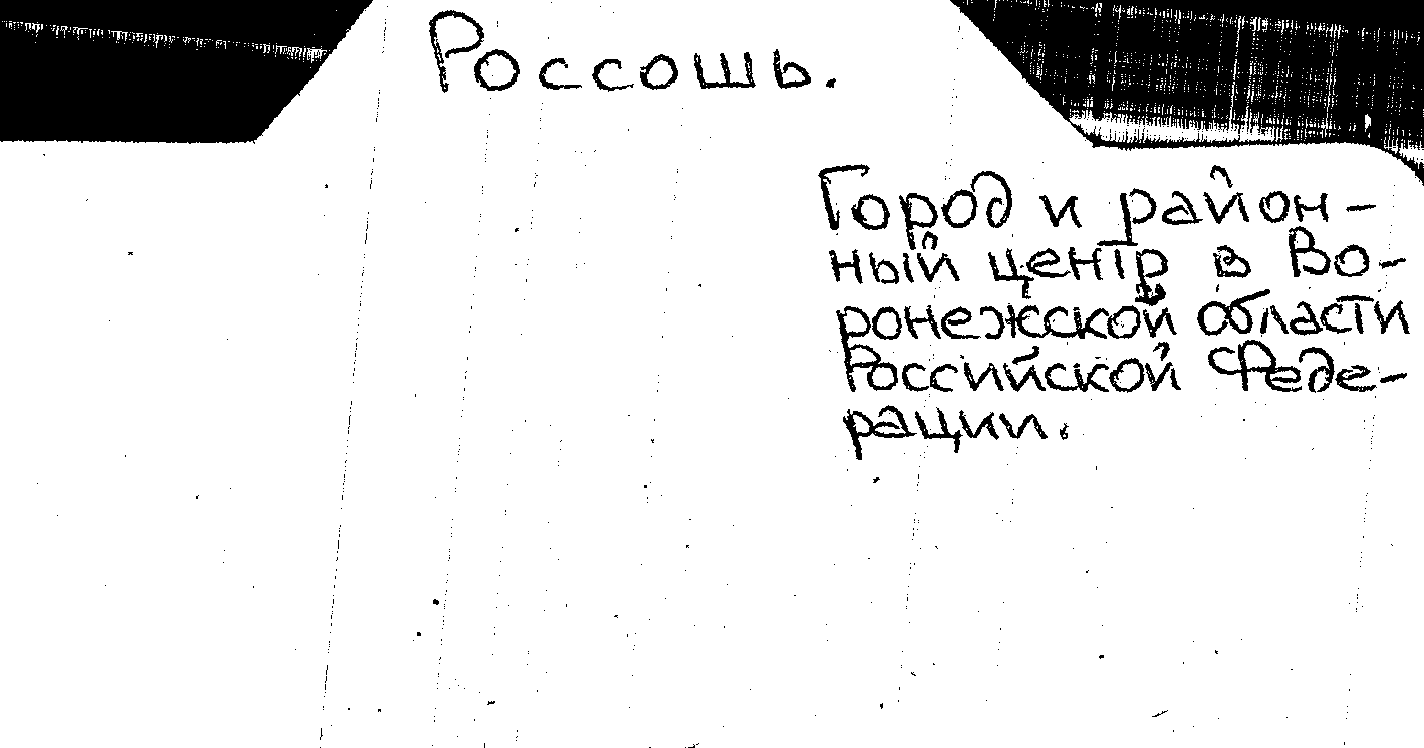 Россошь.
Город и район-
ный центр в Во-
ронежской области
Российской Феде-
рации.